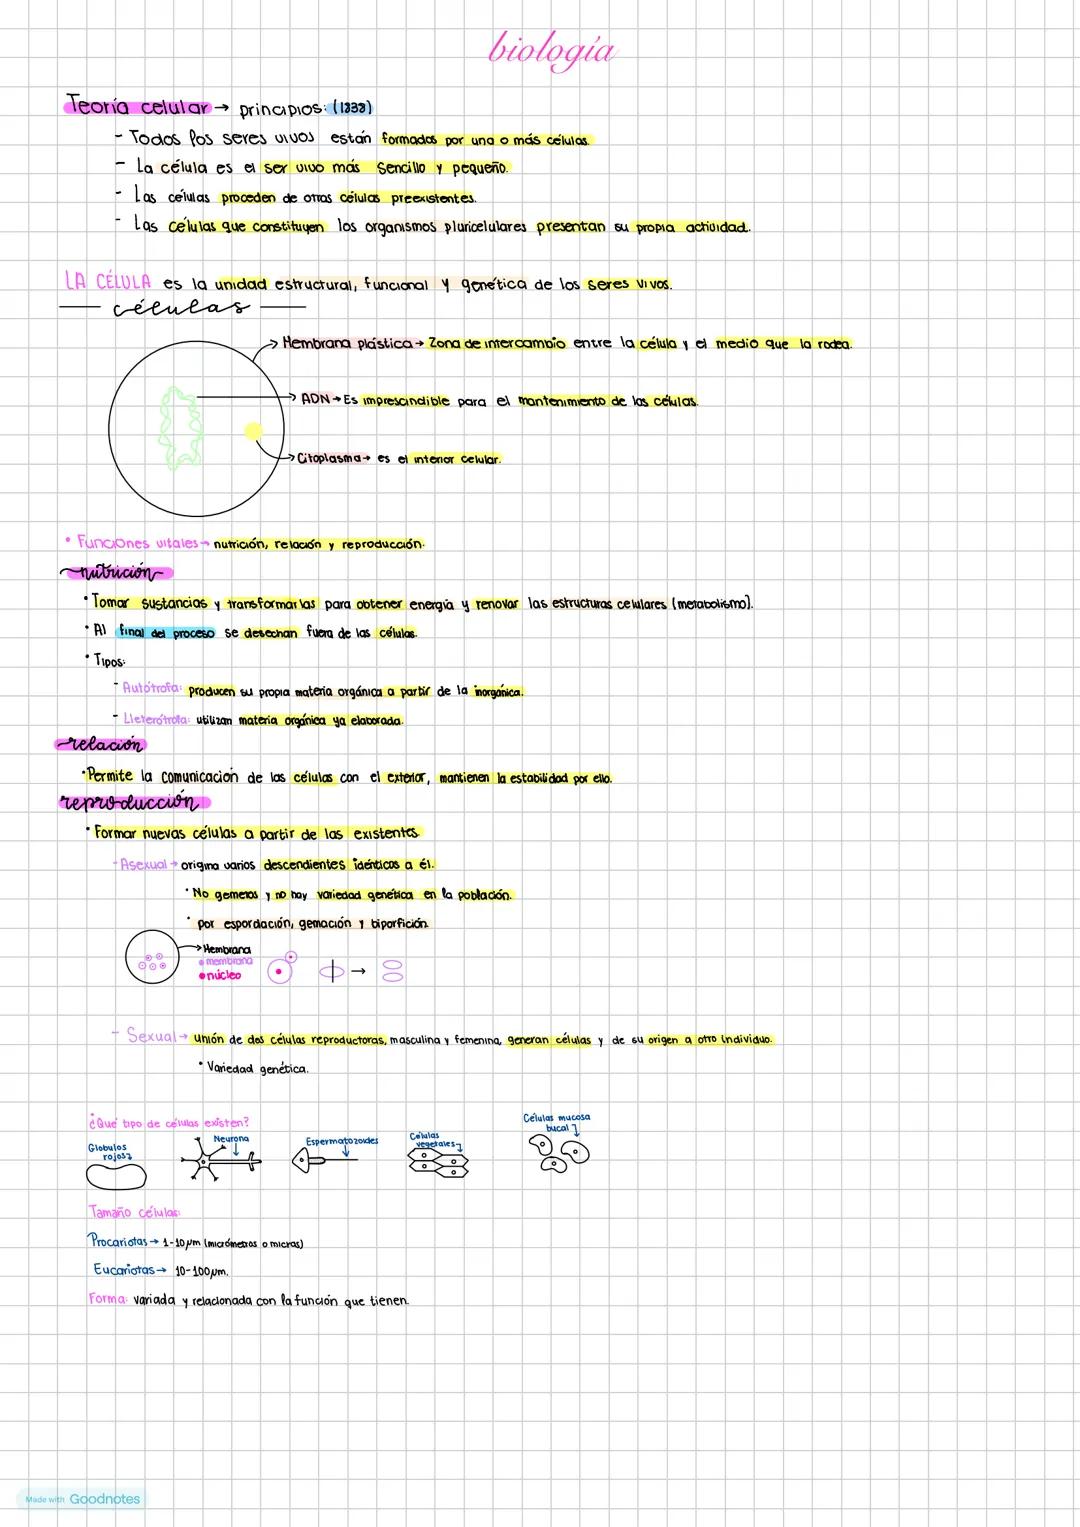 biología
Teoría celular → principios: (1838)
- Todos los seres vivos están formados por una o más células.
- La célula es el ser vivo más sencillo y pequeño.
- Las células proceden de otras células preexistentes.
- Las células que constituyen los organismos pluricelulares presentan su propia actividad.
LA CÉLULA es la unidad estructural, funcional y genética de los seres vivos.
células
Membrana plástica → Zona de intercambio entre la célula y el medio que la rodea.
ADN → Es imprescindible para el mantenimiento de las células.
Citoplasma → es el interior celular.
• Funciones vitales → nutrición, relación y reproducción.
nutrición
• Tomar sustancias y transformarlas para obtener energía y renovar las estructuras celulares (metabolismo).
• Al final del proceso se desechan fuera de las células.
• Tipos:
- Autótrofa: producen su propia materia orgánica a partir de la inorgánica.
- Heterótrofa: utilizan materia orgánica ya elaborada.
relación
• Permite la comunicación de las células con el exterior, mantienen la estabilidad por ello.
reproducción
• Formar nuevas células a partir de las existentes
- Asexual → origina varios descendientes idénticos a él.
• No gemetos y no hay variedad genética en la población.
• por espordación, gemación y biparfición
→ Membrana
• membrana
• núcleo
- Sexual → unión de dos células reproductoras, masculina y femenina, generan células y de su origen a otro individuo.
• Variedad genética.
¿Qué tipo de células existen?
Globulos rojos
Neurona
Espermatozoides
Células vegetales
Células mucosa bucal
Tamaño células:
Procariotas → 1-10 µm (micrómetros o micras)
Eucariotas → 10-100µm.
Forma: variada y relacionada con la función que tienen.
Made with Goodnotes